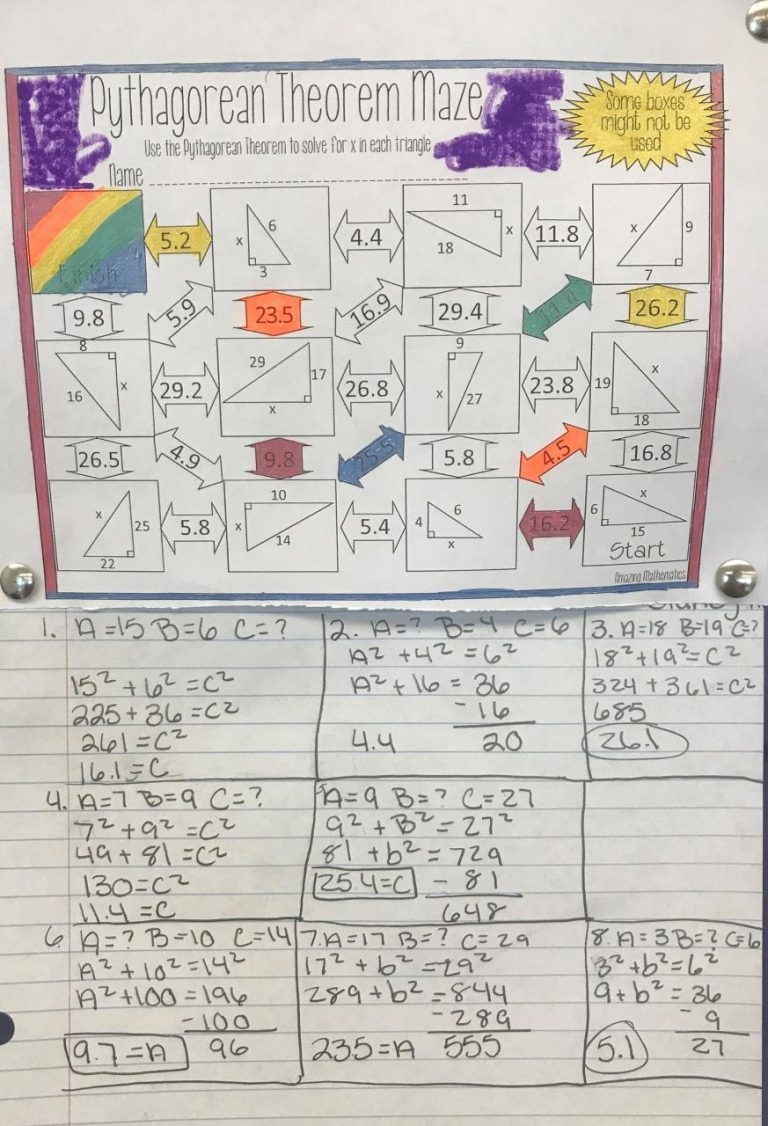 Pythagorean Theorem Maze
Some boxes
might not be
used
Use the Pythagorean Theorem to solve for x in each triangle
Name
Finish
5.2
x 6
3
4.4
11
18 x
11.8
x 9
7
9.8
5.9
23.5
16.9
29.4
11.4
26.2
8
16 x
29.2
29 17
x
26.8
9
x 27
23.8
19 x
18
26.5
4.9
9.8
25.5
5.8
4.5
16.8
x 25
22
5.8
10
x 14
5.4
4 6
x
16.2
6 x
15
Start
Amazing Mathematics
1. A=15 B=6 C=?
15² + 6² = C²
225 + 36 = C²
261 = C²
16.1 = C
2. A=? B=4 C=6
A² + 4² = 6²
A² + 16 = 36
- 16
4.4 20
3. A=18 B=19 C=?
18² + 19² = C²
324 + 361 = C²
685
26.1
4. A=7 B=9 C=?
7² + 9² = C²
49 + 81 = C²
130 = C²
11.4 = C
5 A=9 B=? C=27
9² + B² = 27²
81 + b² = 729
25.4=C - 81
648
6. A=? B=10 C=14
A² + 10² = 14²
A² + 100 = 196
-100
9.7 = A 96
7. A=17 B=? C=29
17² + b² = 29²
289 + b² = 844
- 289
235 = A 555
8. A=3 B=? C=6
3² + b² = 6²
9 + b² = 36
- 9
5.1 27